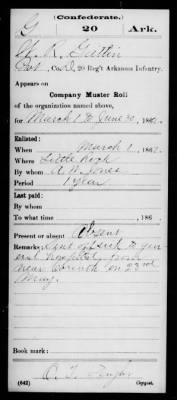 (Confederate.)
G 20 Ark.
W. R. Griffin
Pvt, Co. D, 20 Reg't Arkansas Infantry.
Appears on
Company Muster Roll
of the organization named above,
for March 1 to June 30, 1862.
Enlisted:
When March 1, 1862.
Where Little Rock
By whom A. R. Jones
Period 1 year
Last paid:
By whom
To what time , 186 .
Present or absent Absent
Remarks: Sent off sick to gen
eral hospital from
near Corinth on 23rd
May.
Book mark:
(642) Copyist.